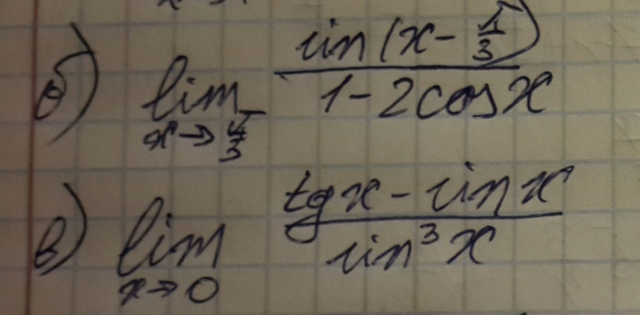 б) lim x→π/3 sin(x - π/3) / 1 - 2cosx
в) lim x→0 tgx - sinx / sin³x